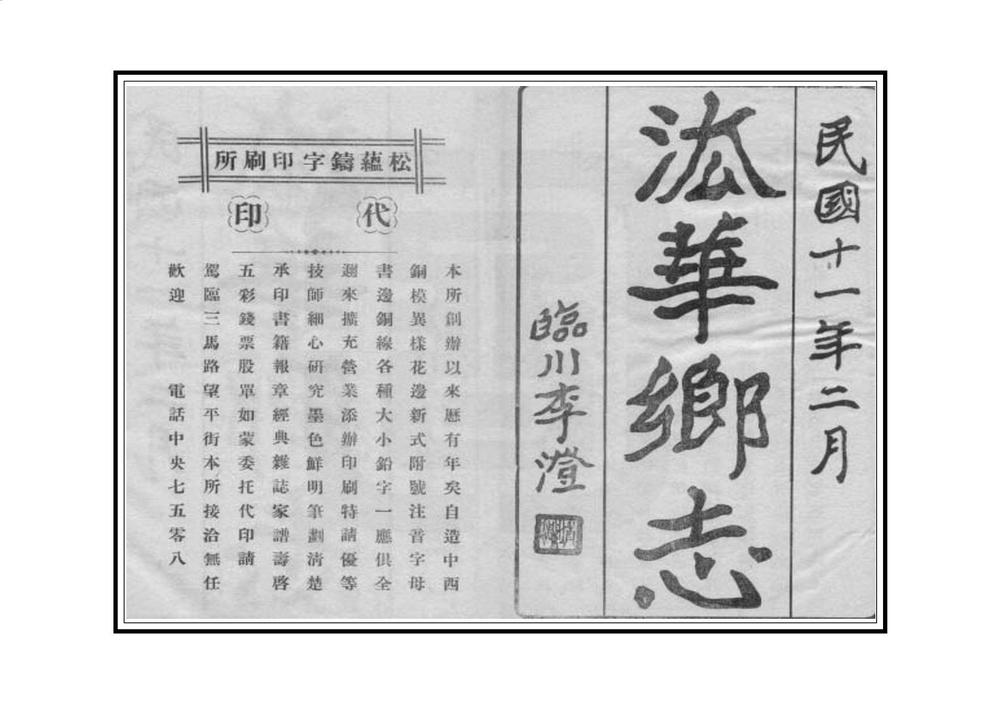 民國十一年二月
法華鄉志
臨川李澄
松蘊鑄字印刷所
代印
本所創辦以來歷有年矣自造中西
銅模異樣花邊新式附號注音字母
書邊銅線各種大小鉛字一應俱全
邇來擴充營業添辦印刷特請優等
技師細心研究墨色鮮明筆劃清楚
承印書籍報章經典雜誌家譜壽啓
五彩錢票股單如蒙委托代印請
駕臨三馬路望平街本所接洽無任
歡迎 電話中央七五零八